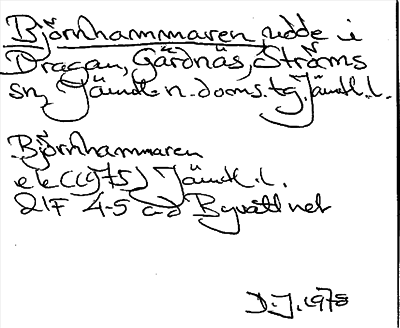 Björnhammmaren, udde i
Dragan, Gärdnäs, Ströms
sn, Jämtl. n. doms. tg. Jämtl. l.
Björnhammaren
ek (1975) Jämtl. l.
21F 4-5 a-d
D.J. 1978